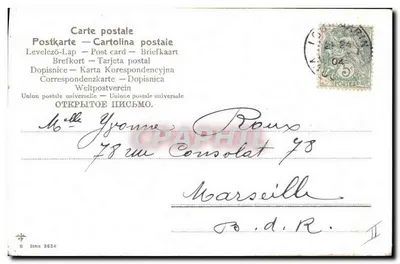 Carte postale
Postkarte — Cartolina postale
Levelező-Lap — Post card — Briefkaart
Brefkort — Tarjeta postal
Dopisnice — Karta Korespondencyjna
Correspondenzkarte — Dopisnica
Weltpostverein
Union postale universelle — Unione postale universale
ОТКРЫТОЕ ПИСЬМО.
Melle Yvonne Roux
78 rue Consolat 78
Marseille
B. d. R.
II
04
5